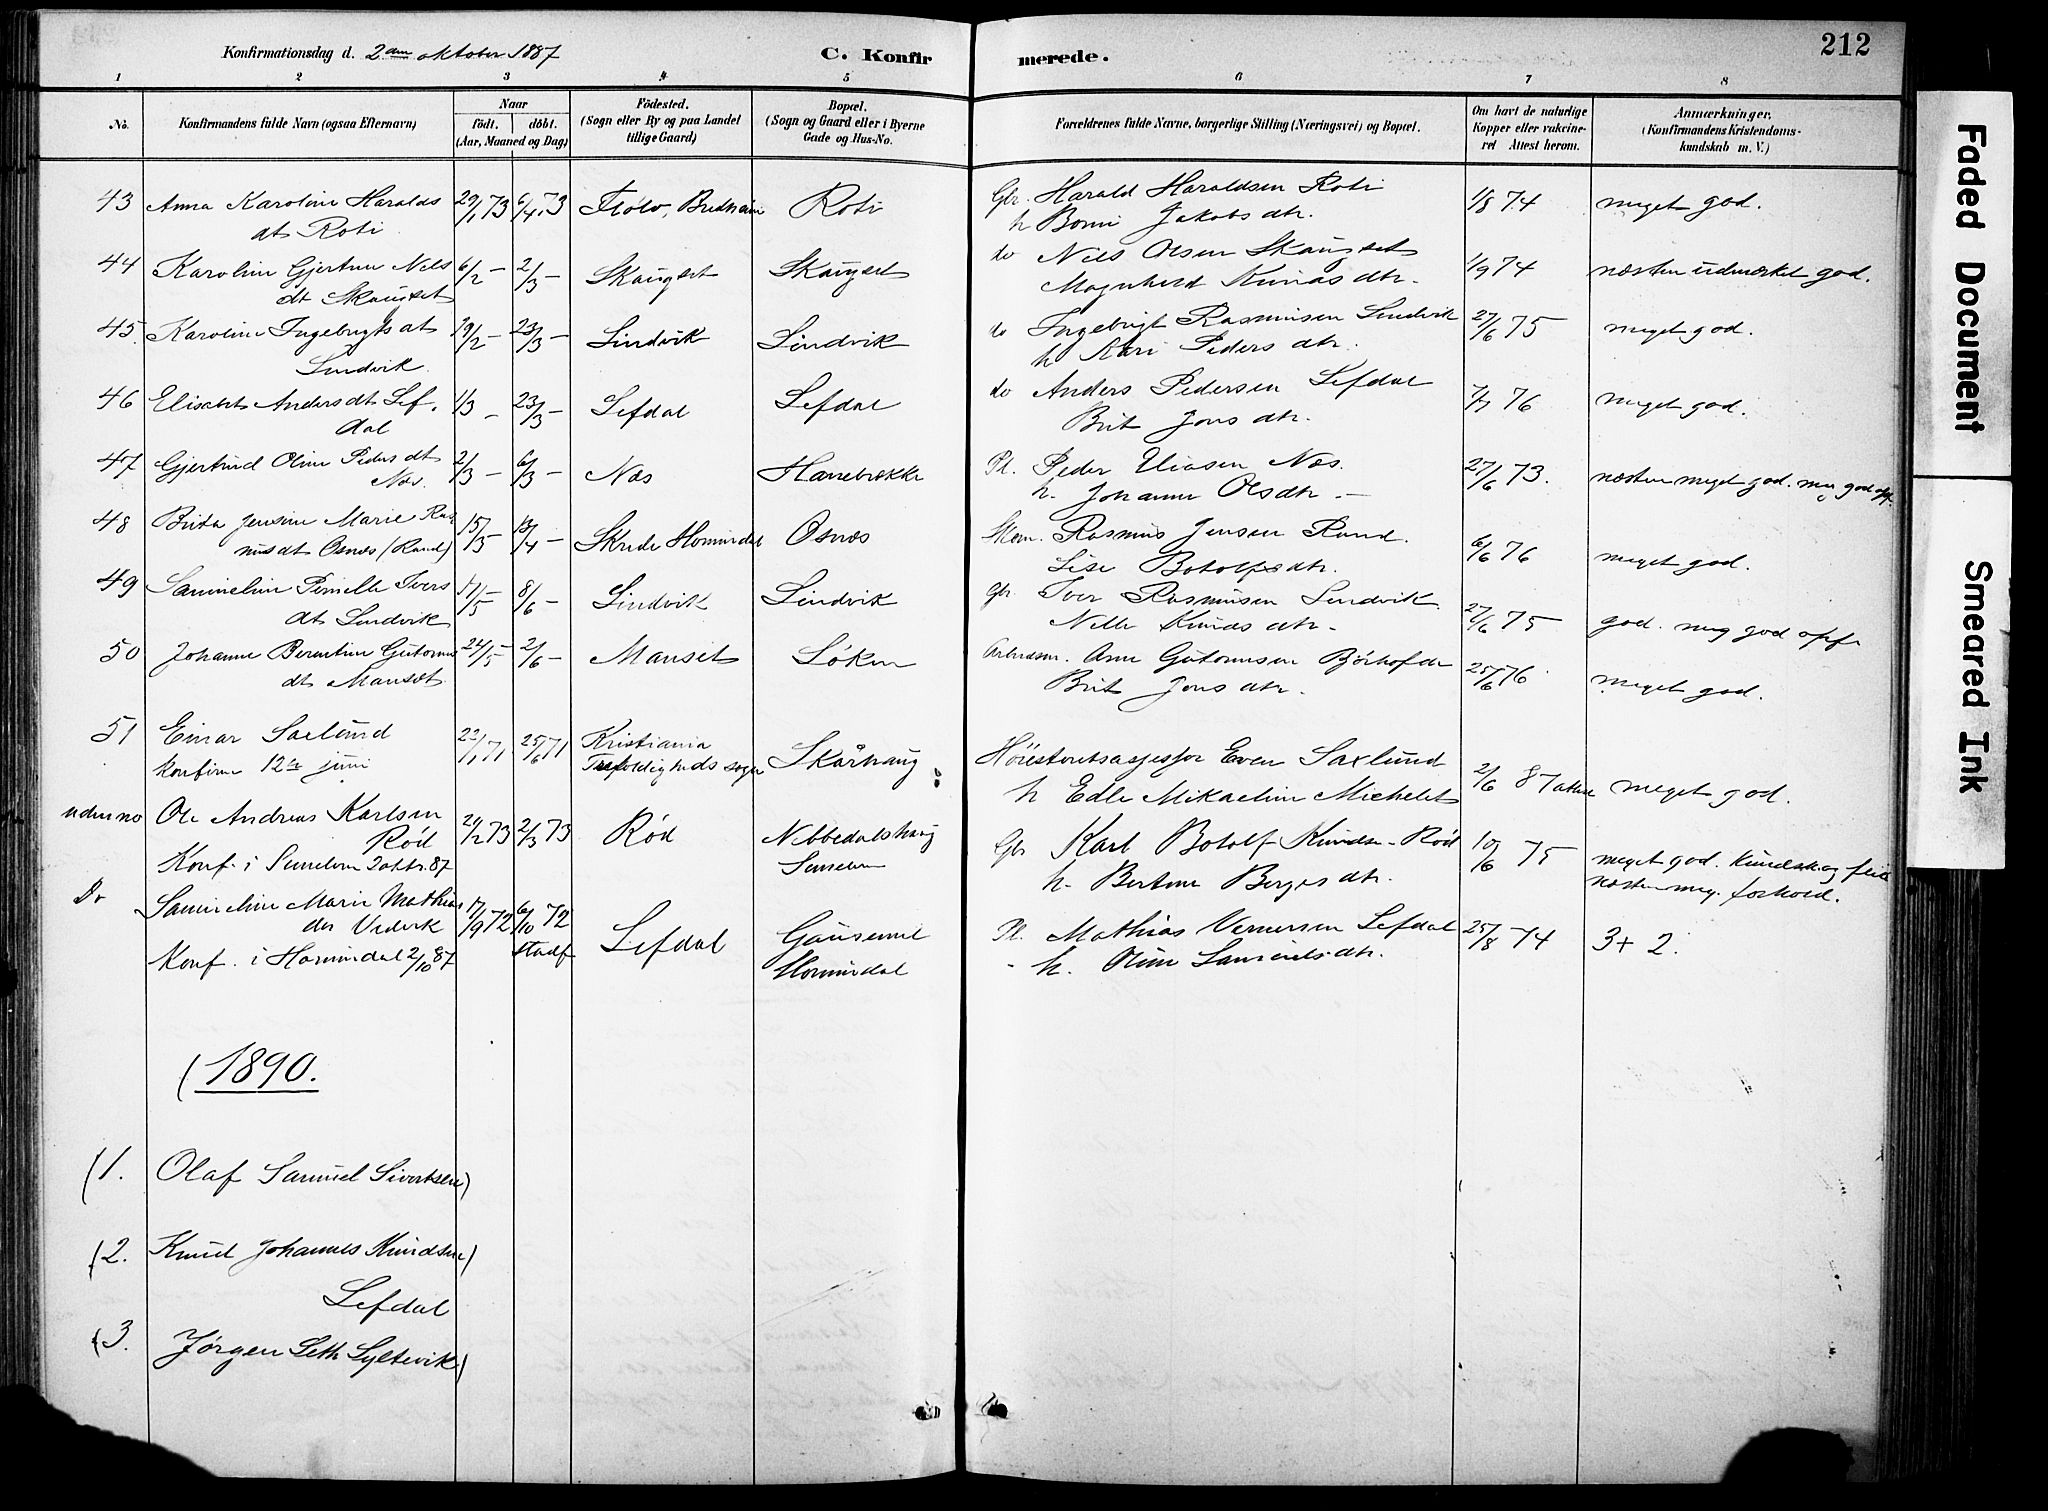 Konfirmationsdag d. 2den oktober 1887 C. Konfirmerede. 212
1 2 3 4 5 6 7 8
No. Konfirmandens fulde Navn (ogsaa Efternavn) Naar födt. döbt. (Aar, Maaned og Dag) Födested. (Sogn eller By og paa Landet tillige Gaard) Bopæl. (Sogn og Gaard eller i Byerne Gade og Hus-No. Forældrenes fulde Navne, borgerlige Stilling (Næringsvei) og Bopæl. Om havt de naturlige Kopper eller vakcineret Attest herom. Anmærkninger. (Konfirmandens Kristendomskundskab m. V.)
43 Anna Karoline Haralds 29/1 73 6/4 73 Flølo, Bredheim Roti Gbr. Harald Haraldsen Roti 1/8 74 meget god.
dt Roti h Jakobsdtr.
44 Karoline Gjertine Nils 6/2 - 2/3 - Skaugset Skaugset do Nils Olsen Skaugset 1/9 74 næsten udmærket god.
dt Skaugset Magnhild Knudsdtr.
45. Karoline Ingebrigts dt 19/2 - 23/3 - Lindvik Lindvik do Ingebrigt Rasmusen Lindvik 27/6 75 meget god.
Lindvik h Kari Pedersdtr.
46 Elisabet Andersdt Lef- 1/3 - 23/3 - Lefdal Lefdal do Anders Pedersen Lefdal 7/7 76 meget god.
dal Brit Jonsdtr.
47 Gjertrud Oline Pedersdt 2/3 - 6/3 - Nos Hanebrekke Pl. Peder Eliasen Nos. 27/6 73. næsten meget god. meg god opf.
Nos. h. Johanne Olsdtr. -
48 Brita Jensine Marie Ras 15/3 13/4 - Skrede Hornindal Osnæs Rasmus Jensen Rand. 6/6 76 meget god.
musdt Osnæs (Rand) Lise Botolfsdtr.
49 Samueline Pernille Ivers 17/5 - 8/6 - Lindvik Lindvik gbr. Iver Rasmusen Lindvik 27/6 75 god. meg god opfø
dt Lindvik Nille Knudsdtr.
50 Johanne Berentine Guttorms 24/5 - 2/6 - Manset Løken Arbeidsm. Arne Guttormsen 25/6 76. meget god.
dt Mansæt Brit Jonsdtr.
51 Einar Saxlund 22/1 71 25/6 71 Kristiania Skårhaug Høiesteretsassessor Even Saxlund 2/6 87 attest meget god.
konfirm 12te juni Trefoldigheds sogn h Edle Mikaeline Michelet
uden no Ole Andreas Karlsen 24/2 73 2/3 73 Rød Nebbedalshaug Gbr Karl Botolf Knudsen Rød 10/6 75 meget god. kundsk og flid
Rød h. Bertine Bergesdtr. næsten meg. forhold.
Konf. i Sunelven 2 oktr. 87 Sunelven
Do Samueline Marie Mathias 17/9 72 6/10 72 Lefdal Gausemel Pl. Mathias Vernersen Lefdal 25/8 74 3+ 2.
dtr Vedvik stadf Hornindal h. Oline Samuelsdtr.
Konf. i Hornindal 2/10 87
(1890.
(1. Olaf Samuel Sivertsen)
(2. Knud Johannes Knudsen)
Lefdal
(3. Jørgen Seth Lyltevik)
Faded Document
Smeared Ink